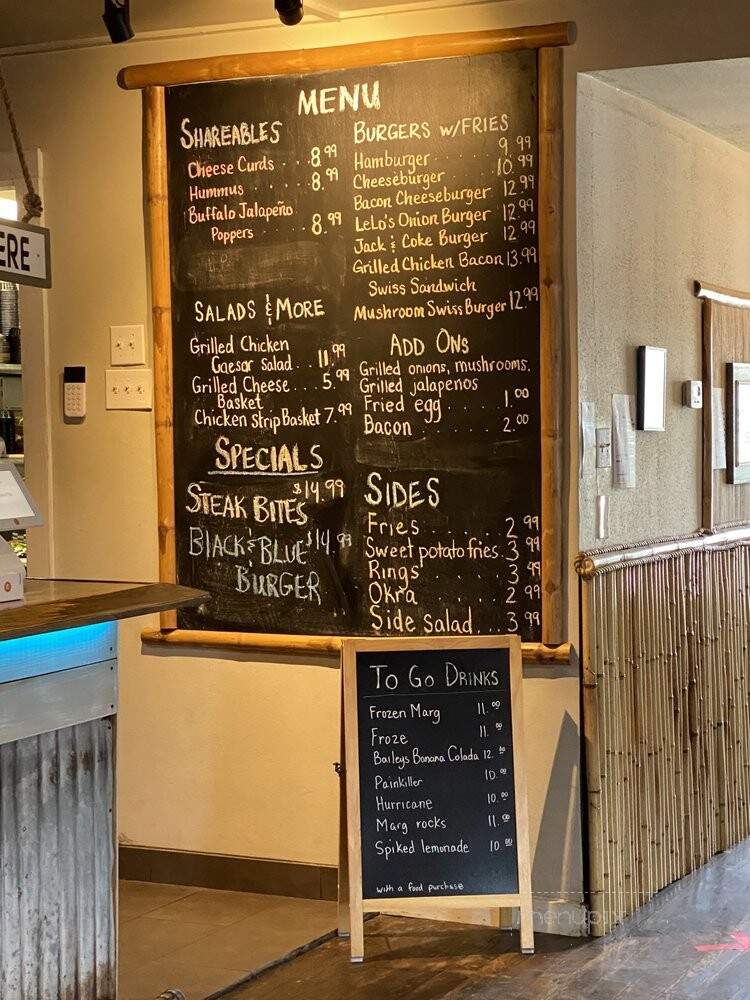 MENU
SHAREABLES
Cheese Curds . . . 8.99
Hummus . . . . . . 8.99
Buffalo Jalapeño
Poppers . . . . . 8.99
SALADS & MORE
Grilled Chicken
Caesar Salad . . 11.99
Grilled Cheese . . . 5.99
Basket
Chicken Strip Basket 7.99
SPECIALS
STEAK BITES $14.99
BLACK & BLUE $14.99
BURGER
BURGERS W/FRIES
Hamburger . . . . . . 9.99
Cheeseburger . . . . 10.99
Bacon Cheeseburger . 12.99
LeLo's Onion Burger 12.99
Jack & Coke Burger 12.99
Grilled Chicken Bacon 13.99
Swiss Sandwich
Mushroom Swiss Burger 12.99
ADD ONS
Grilled onions, mushrooms,
Grilled jalapenos
Fried egg . . . . . 1.00
Bacon . . . . . . . 2.00
SIDES
Fries . . . . . . . 2.99
Sweet potato fries . 3.99
Rings . . . . . . . 3.99
Okra . . . . . . . 2.99
Side salad . . . 3.99
ERE
TO GO DRINKS
Frozen Marg 11.00
Froze 11.00
Baileys Banana Colada 12.00
Painkiller 10.00
Hurricane 10.00
Marg rocks 11.00
Spiked lemonade 10.00
with a food purchase
menupix